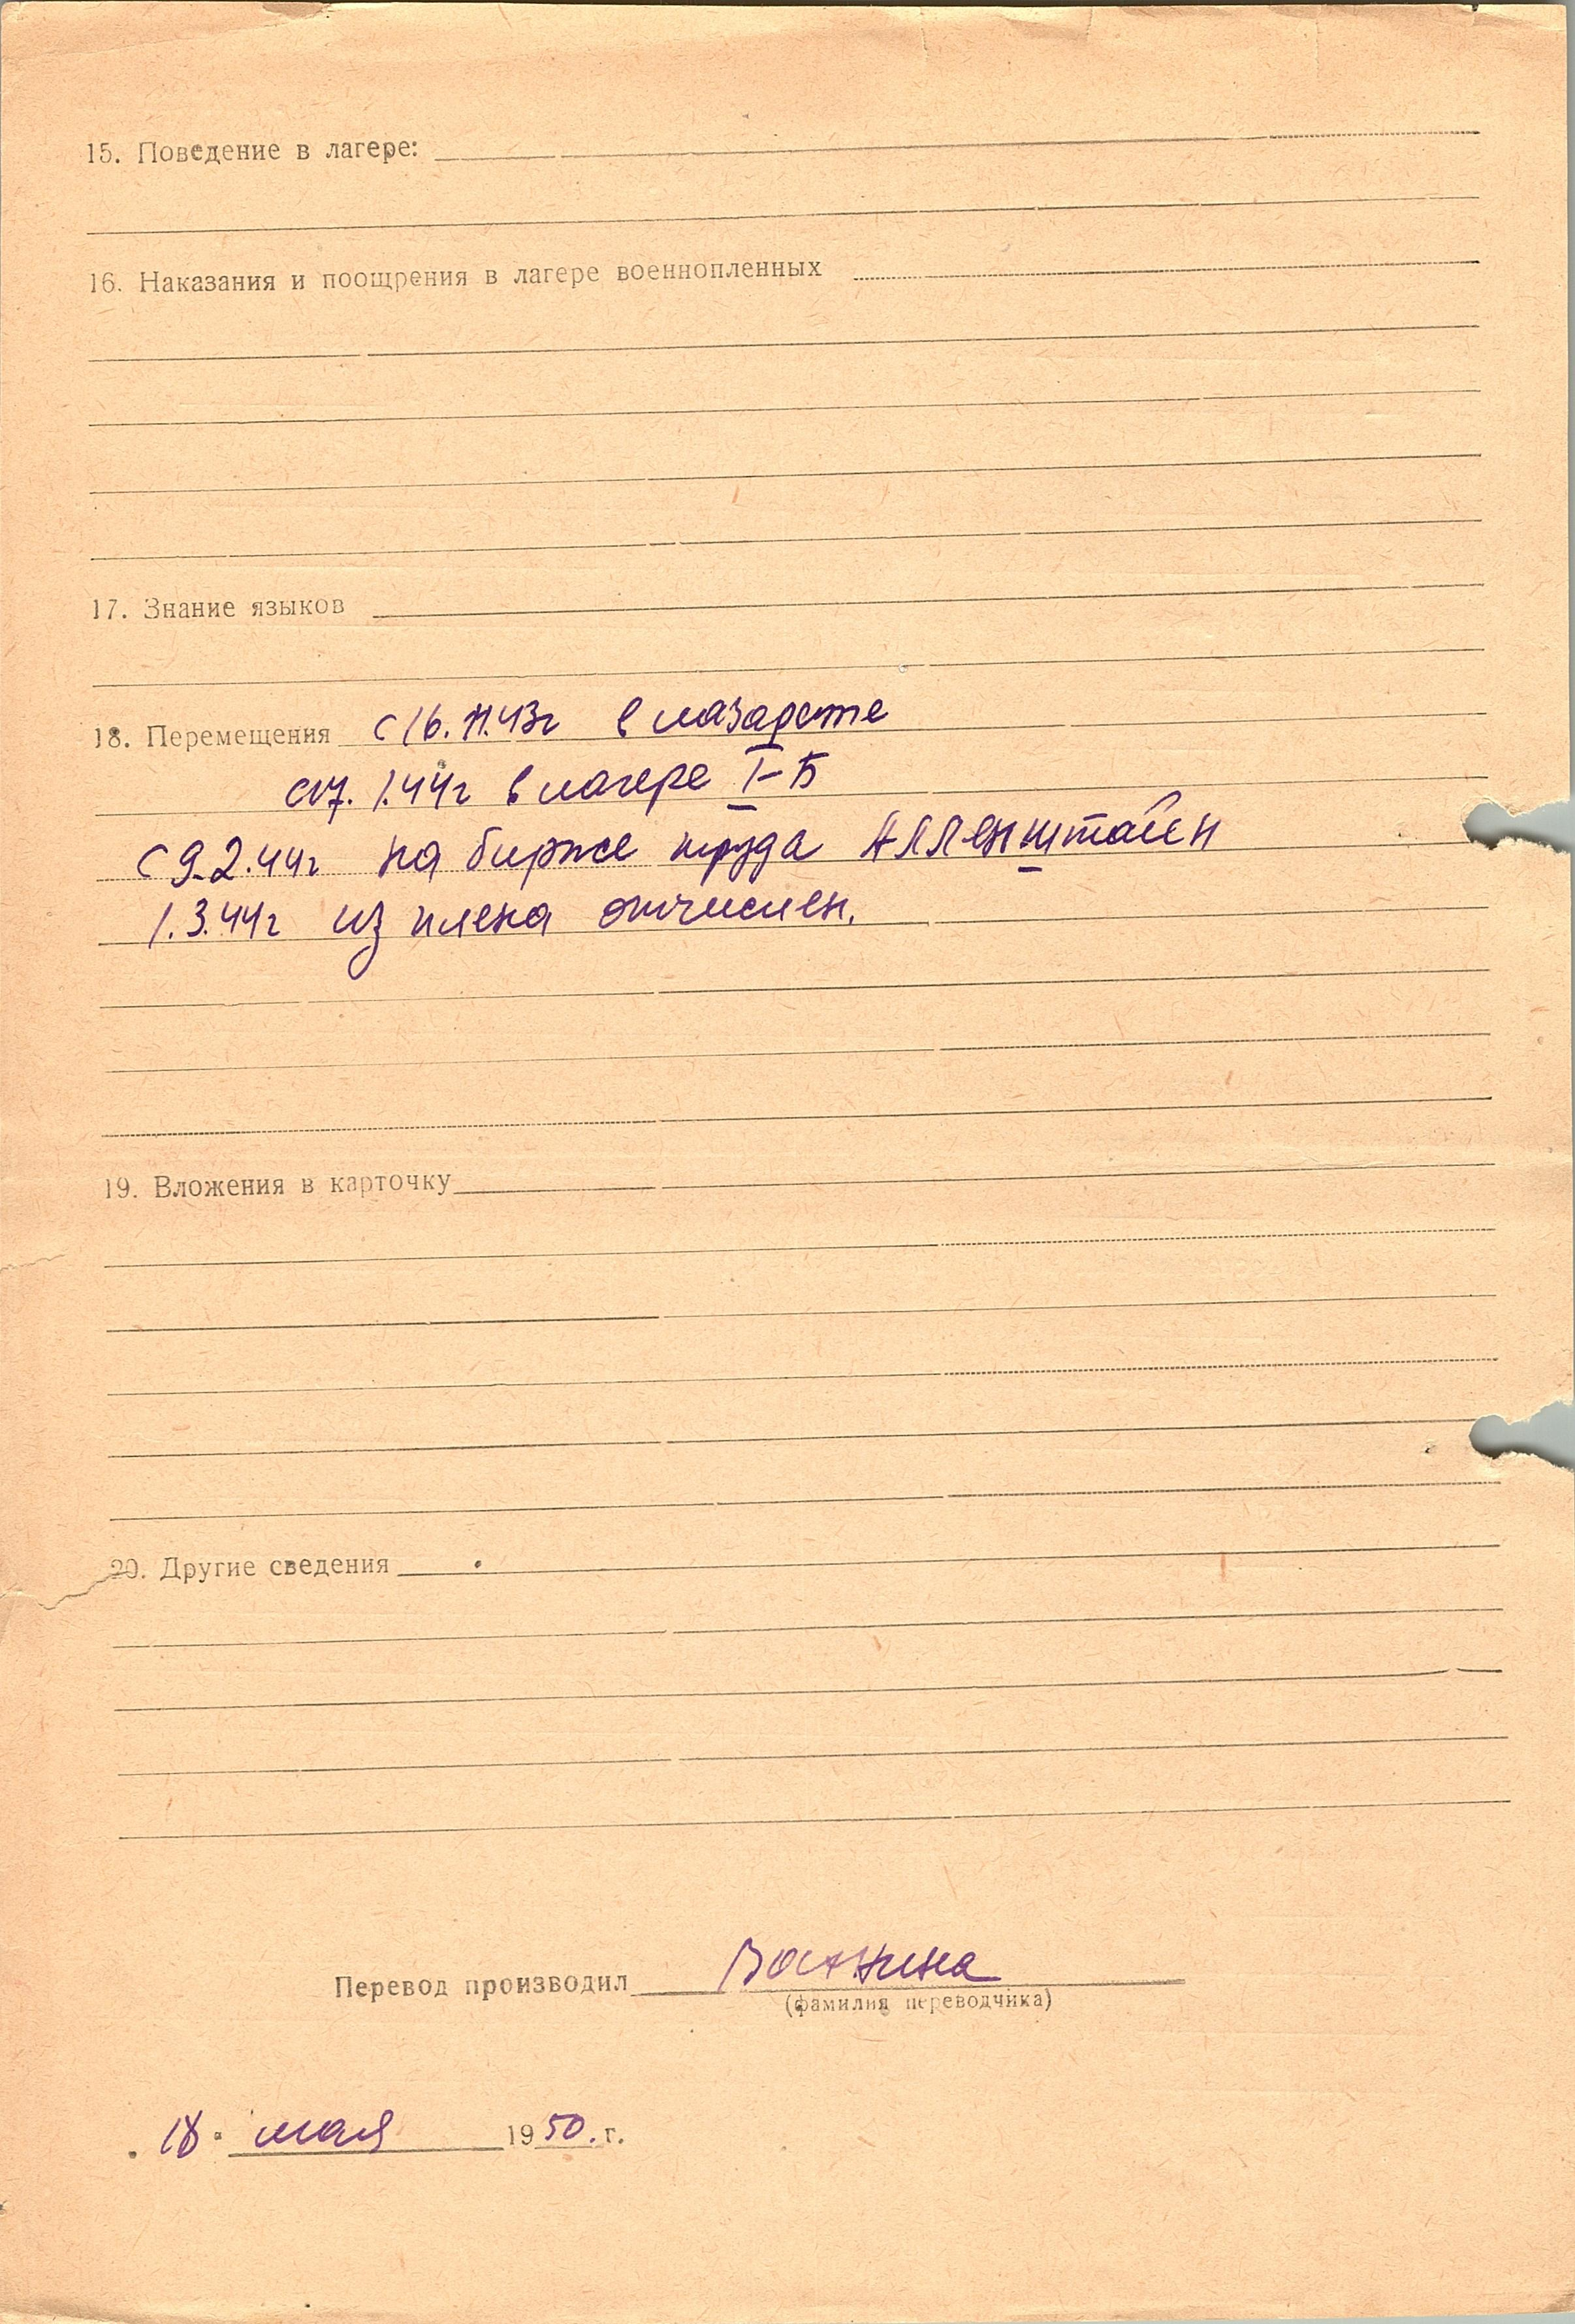 15. Поведение в лагере:
16. Наказания и поощрения в лагере военнопленных
17. Знание языков
18. Перемещения с 16.11.43г в лазарете
с 17.1.44г в лагере I-Б
с 9.2.44г на бирже труда Алленштайн
1.3.44г из плена отчислен.
19. Вложения в карточку
20. Другие сведения
Перевод производил
(фамилия переводчика)
18 мая 1950.г.